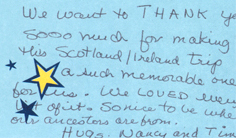 We want to THANK
sooo much for making
this Scotland/Ireland trip
a such memorable one
for us. We LOVED
of it. So nice to be
our ancestors are from.
Hugs, Nancy and